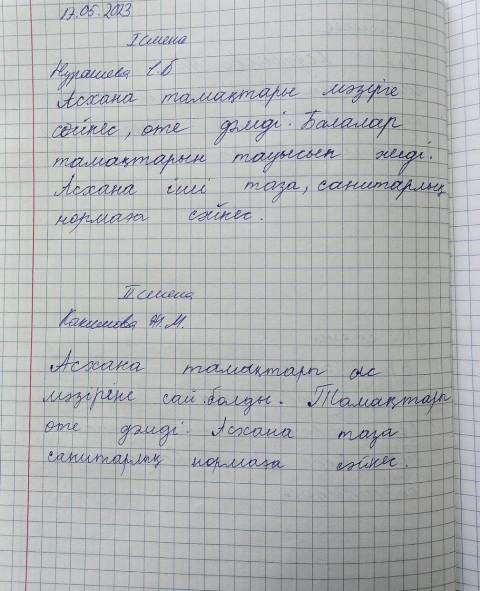 17.05.2023
I смена
Нурашева С.Б
Асхана тамақтары мәзірге
сәйкес, өте дәмді. Балалар
тамақтарын тауысып жеді.
Асхана іші таза, санитарлық
нормаға сәйкес.
II смена
Какимова Ж.М.
Асхана тамақтары ас
мәзіріне сай болды. Тамақтары
өте дәмді. Асхана таза
санитарлық нормаға сәйкес.